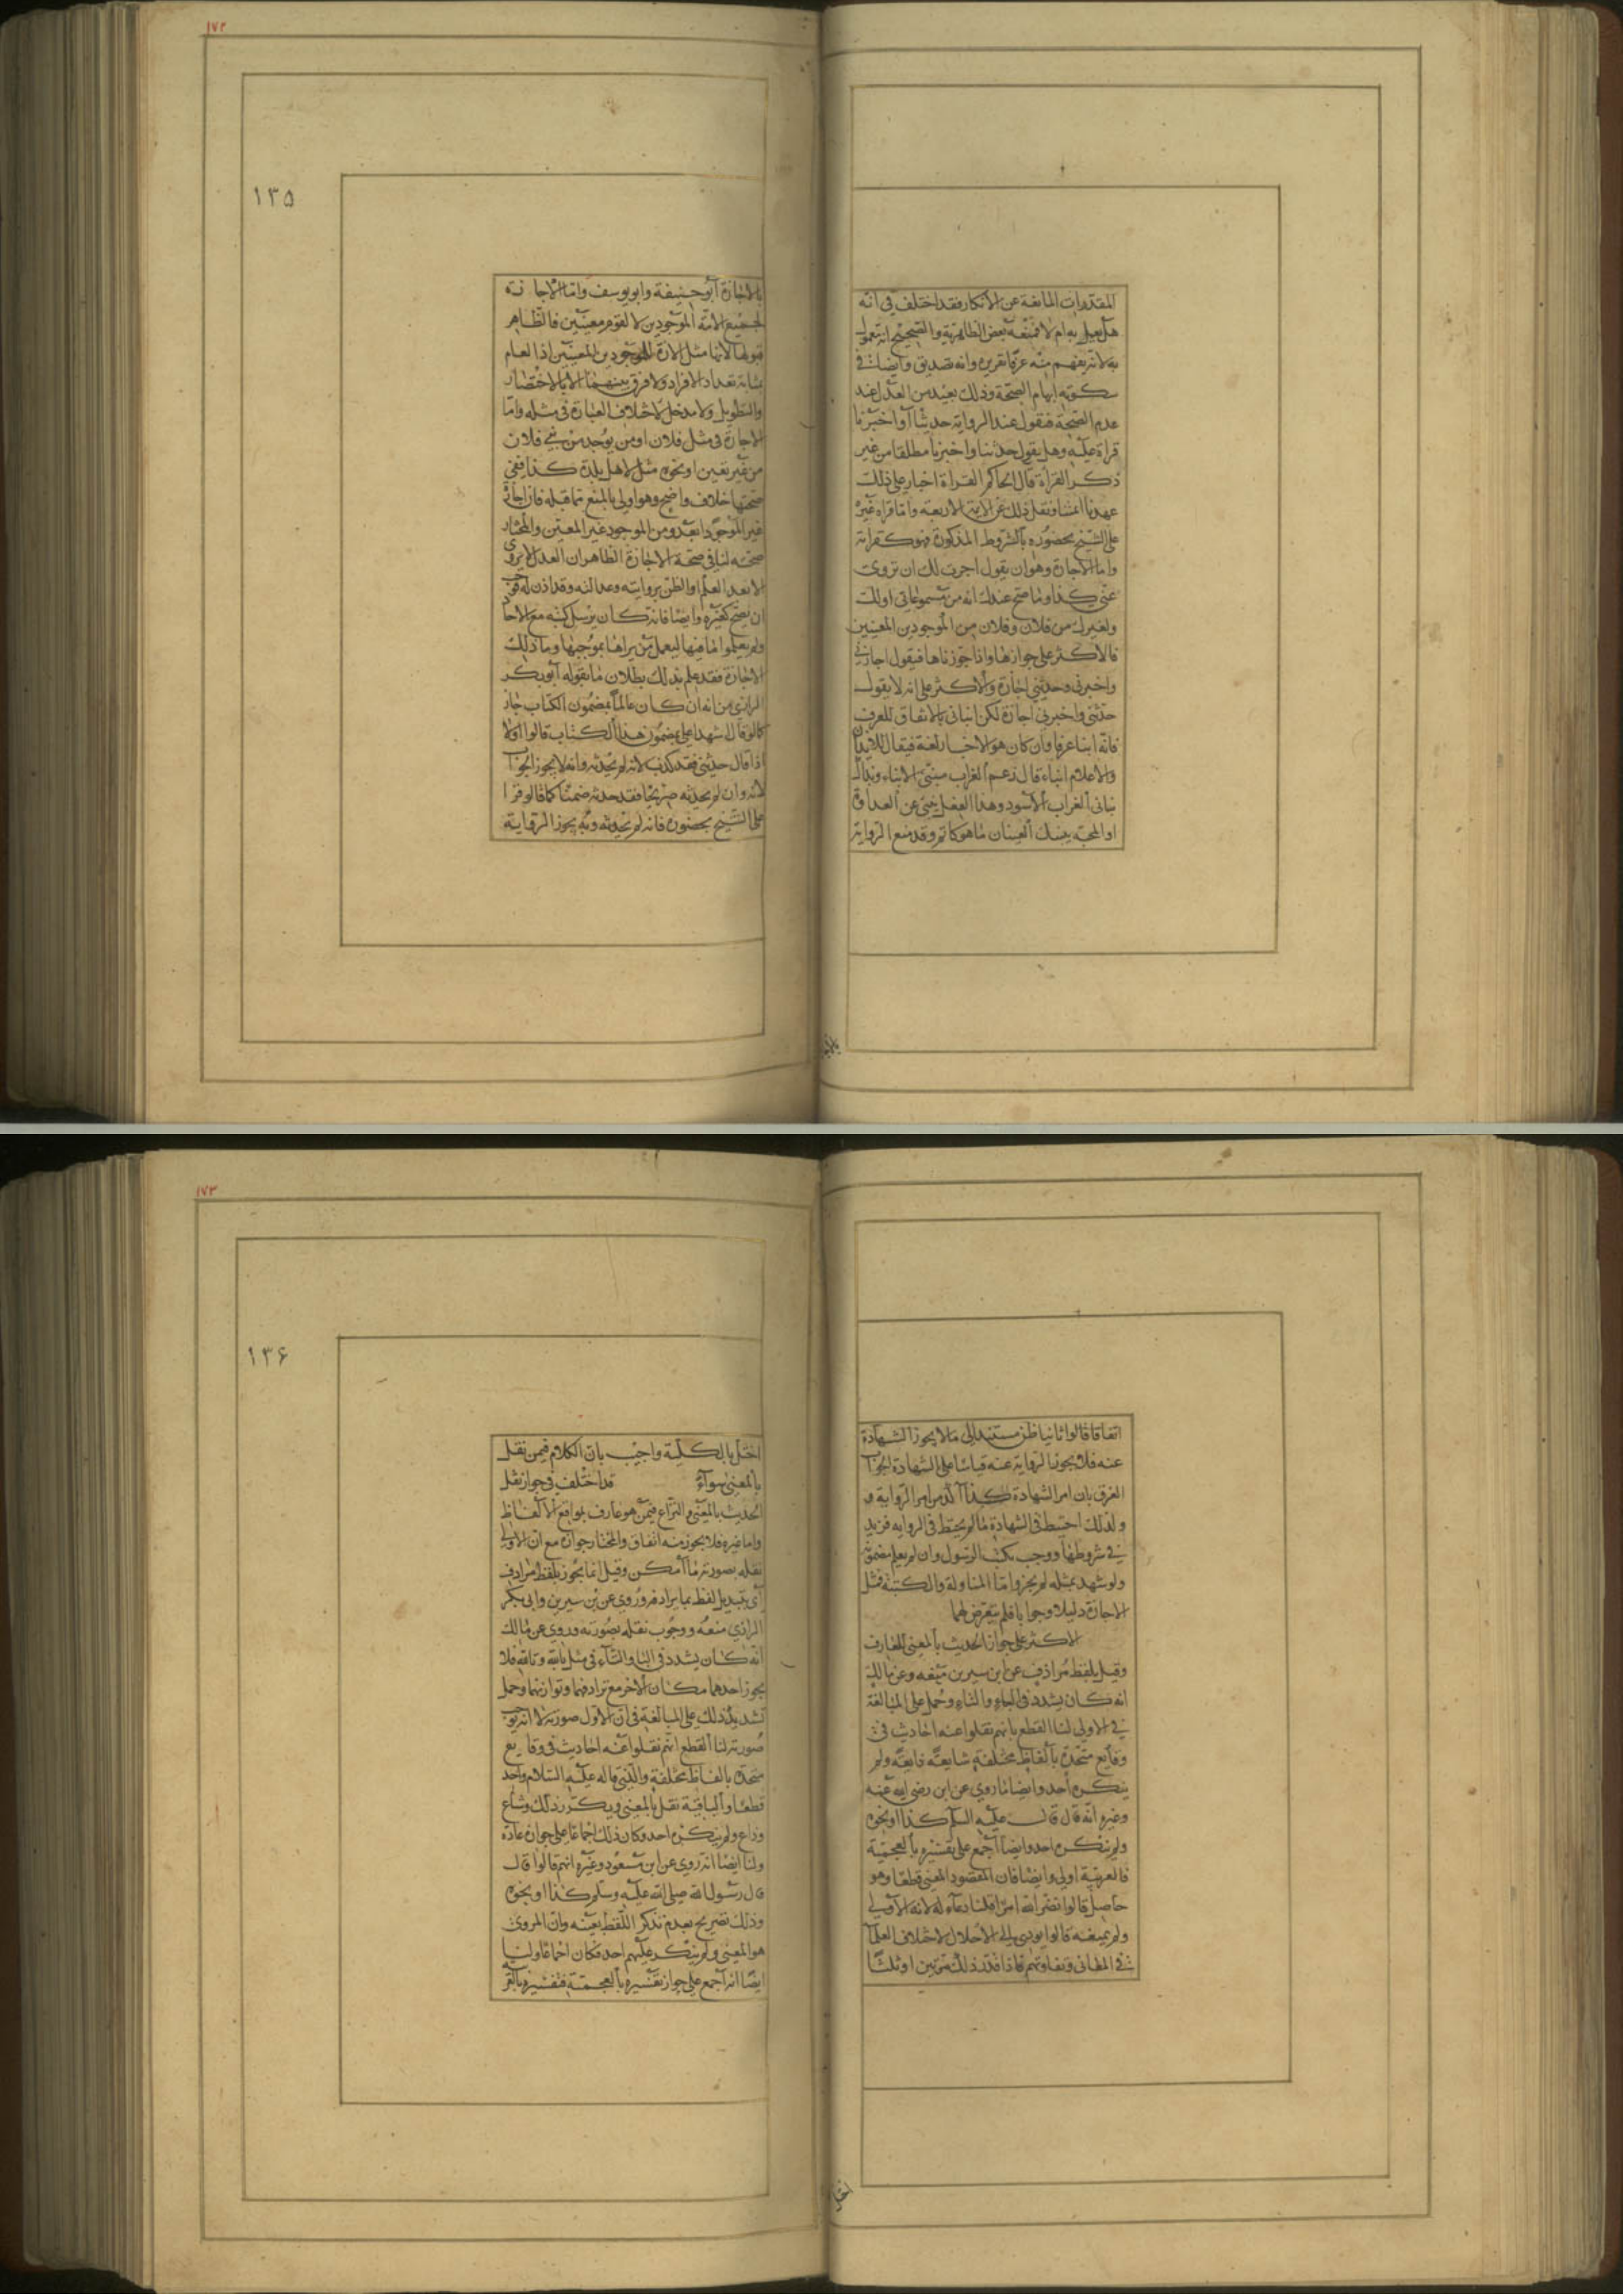 المقدرات المانعة عن الانكار فقد اختلف في انه
هل يعمل به ام لا فمنعه بعض الظاهرية والصحيح انه معمول
به لانه يفهم منه عرفا تقريره وانه تصديق وايضا ففي
سكوته ايهام الصحة وذلك بعيد من العدل عند
عدم الصحة فنقول عند الرواية حدثنا او اخبرنا
قراة عليه وهل يقول حدثنا واخبرنا مطلقا من غير
ذكر القراة قال الحاكم القراة اخبار على ذلك
عهدنا ائمتنا ونقل ذلك عن الائمة الاربعة واما قراة غيره
على الشيخ بحضوره بالشروط المذكورة فهو كقراته
واما الاجازة وهو ان يقول اجزت لك ان تروى
عني كذا وما صح عندك انه من مسموعاتي او لك
ولغيرك من فلان وفلان من الموجودين المعينين
فالاكثر على جوازها واذا جوزناها فيقول اجازني
واخبرني وحدثني اجازة والاكثر على انه لا يقول
حدثني واخبرني اجازة لكن انباني بالاتفاق للعرف
فانه انبا عرفا وان كان هو الاخبار لغة فيقال للايذان
والاعلام انباء قال زعم الغراب منبئ الانباء ويقال
نباني الغراب الاسود وهذا الفعل ينبئ عن العداوة
او المحبة ينبيك العينان ما هو كاتم وقد منع الرواية
بالاجا
١٧٢
١٣٥
بالاجازة ابو حنيفة وابو يوسف واما الاجازة
لجميع الامة الموجودين لا لقوم معينين فالظاهر
قبولها لانها مثل الاجازة للموجودين المعينين اذ العام
بمثابة تعداد الافراد ولا فرق بينهما الا بالاختصار
والتطويل ولا مدخل لاختلاف العبارة في مثله واما
الاجازة في مثل فلان او من يوجد من بني فلان
من غير تعيين او نحوه مثل لاهل بلدة كذا ففي
صحتها خلاف واضح وهو اولى بالمنع مما قبله فان اجازة
غير الموجود ابعد ومن الموجود غير المعين والمختار
صحته لنا في صحة الاجازة الظاهر ان العدل لا يروى
الا بعد العلم او الظن بروايته وعدالته وقد اذن له فوجب
ان يصح كغيره وايضا فانه كان يرسل كتبه مع الاحاد
ولم يعلموا ما فيها ليعمل من يراها بموجبها وما ذلك
الاجازة فقد علم بذلك بطلان ما يقوله ابو بكر
الرازي من انه ان كان عالما بمضمون الكتاب جاز
كما لو قال اشهدا على مضمون هذا الكتاب قالوا اولا
اذا قال حدثني فقد كذب لانه لم يحدثه وانه لا يجوز الجواب
لانه وان لم يحدثه صريحا فقد حدثه ضمنا كما قالو قرا
على الشيخ بحضوره فانه لم يحدثه وثم يجوز الرواية
اتفاقا قالوا ثانيا ظن مستند الى ما لا يجوز الشهادة
عنه فلا يجوز الرواية عنه قياسا على الشهادة الجواب
الفرق بان امر الشهادة كذا آكد من امر الرواية
ولذلك احتيط في الشهادة ما لم يحتط في الرواية فزيد
في شروطها ووجب بكتب الرسول وان لم يعلم مضمونه
ولو شهد بمثله لم يجز واما المناولة والكتبة فمثل
الاجازة دليلا وجوابا فلم يتعرض لهما
الاكثر على جواز الحديث بالمعنى للعارف
وقيل بلفظ مرادف عن ابن سيرين منعه وعن مالك
انه كان يشدد في الباء والتاء وحمل على المبالغة
في الاولى لنا القطع بانهم نقلوا عنه احاديث في
وقايع متحدة بالفاظ مختلفة شايعة ذايعة ولم
ينكره احد وايضا ما روى عن ابن رضى الله عنه
وغيره انه قال قال عليه السلم كذا او نحوه
ولم ينكره احد وايضا اجمع على تفسيره بالعجمية
فالعربية اولى وايضا فان المقصود المعنى قطعا وهو
حاصل قالوا نضر الله امرأ قلنا دعاء له لانه الاولى
ولم يمنعه قالوا يودي الى الاخلال لاختلاف العلما
في المعاني وتفاوتهم فاذا قدر ذلك مرتين او ثلثا
اختل
١٧٣
١٣۶
اختل بالكلية واجيب بان الكلام فيمن نقل
بالمعنى سوآء قد اختلف في جواز نقل
الحديث بالمعنى والنزاع فيمن هو عارف بمواقع الالفاظ
واما غيره فلا يجوز منه اتفاقا والمختار جوازه مع ان الاولى
نقله بصورته ما امكن وقيل انما يجوز بلفظ مرادف
اى بتبديل لفظ بما يرادفه وروي عن بن سيرين وابى بكر
الرازي منعه ووجوب نقله بصورته وروي عن مالك
انه كان يشدد في البا والتآء في مثل بالله وتالله فلا
يجوز احدهما مكان الاخر مع ترادفهما وتوازنهما وحمل
تشديده ذلك على المبالغة في ان الاول صورته لا انه يوجب
صورته لنا القطع انهم نقلوا عنه احاديث في وقايع
متحدة بالفاظ مختلفة والذي قاله عليه السلام واحد
قطعا والباقية نقل بالمعنى ويكرر ذلك وشاع
وذاع ولم ينكره احد وكان ذلك اجماعا على جوازه عادة
ولنا ايضا انه روي عن ابن مسعود وغيره انهم قالوا قال
قال رسول الله صلى الله عليه وسلم كذا او نحوه
وذلك تصريح بعدم تذكر اللفظ بعينه وان المروى
هو المعنى ولم ينكر عليهم احد فكان اجماعا ولنا
ايضا انه اجمع على جواز تفسيره بالعجمية فتفسيره بالعر